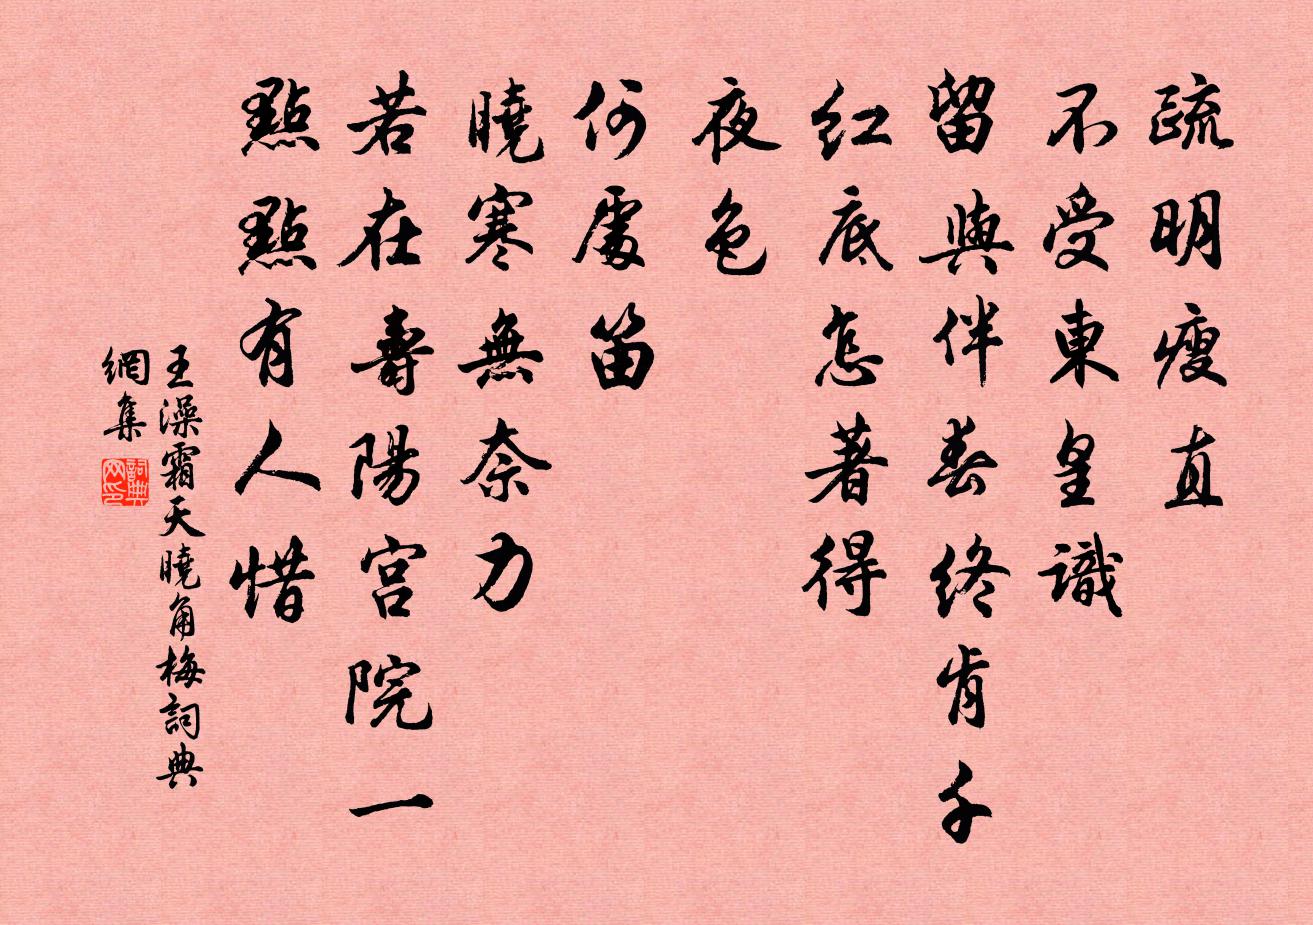 疏明瘦直
不受東皇識
留與伴春終肯千
紅底怎著得
夜色
何處笛
曉寒無奈力
若在壽陽宮院一
點點有人惜
王澡霜天曉角梅詞典
網集
詞典
网印